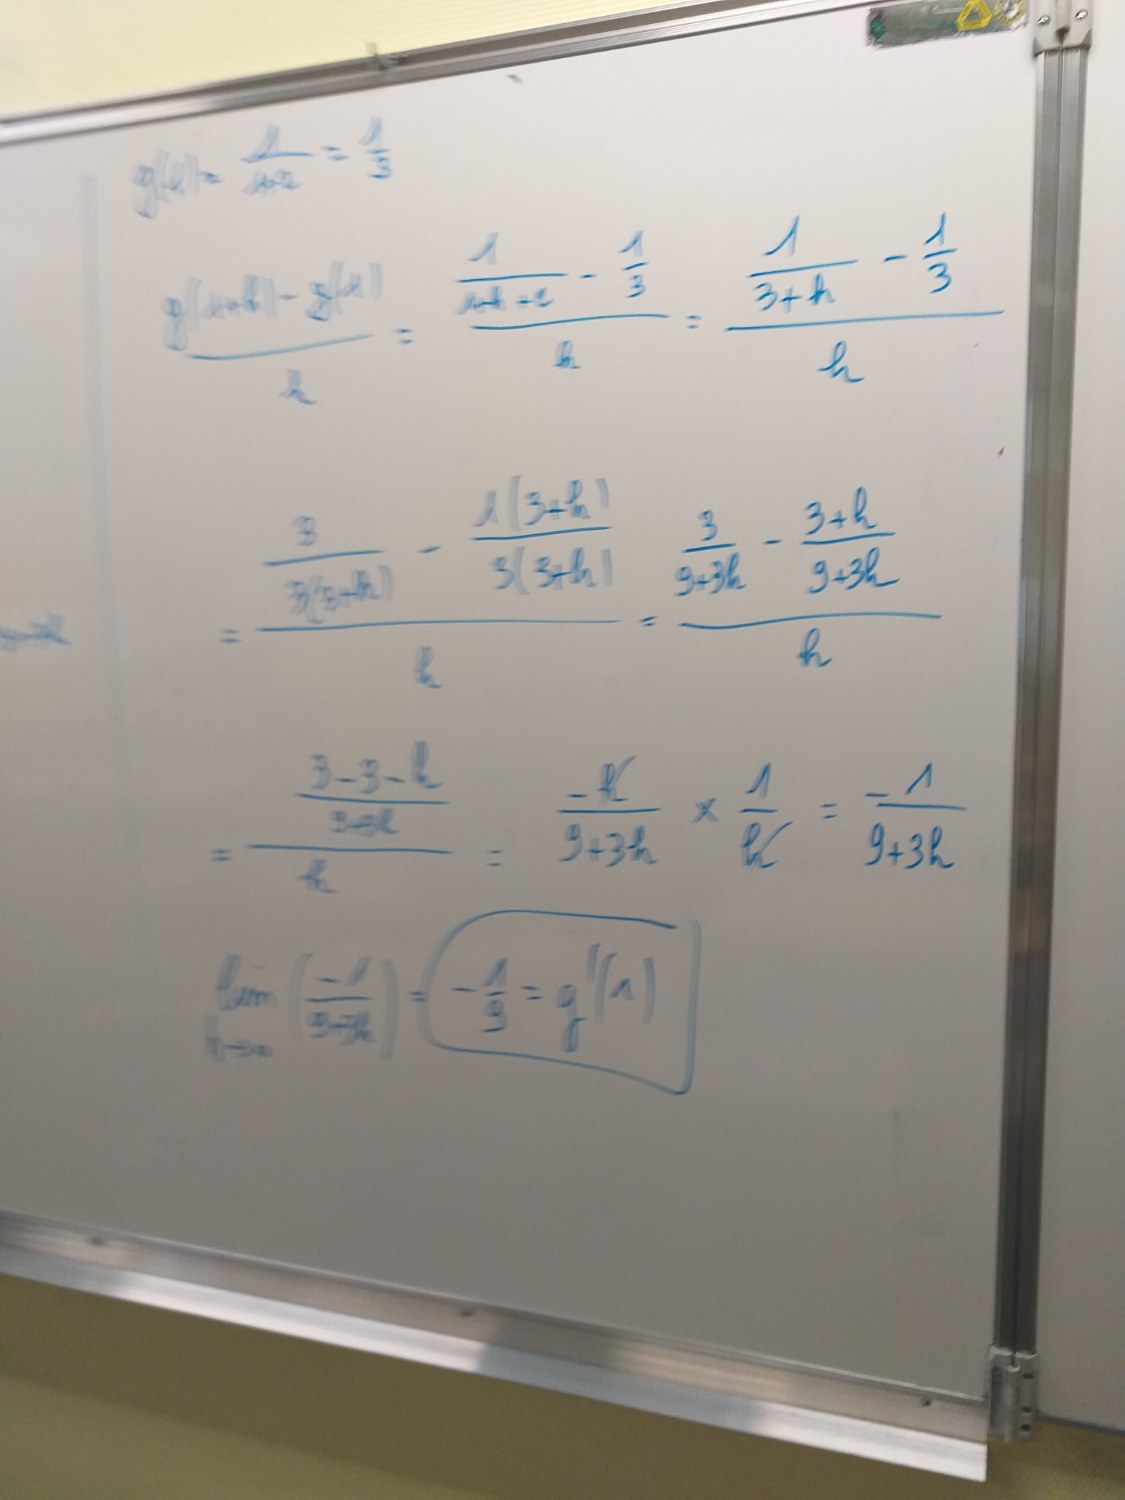 g(1) = 1/(1+2) = 1/3
(g(1+h) - g(1))/h = (1/(1+h+2) - 1/3)/h = (1/(3+h) - 1/3)/h
= (3/(3(3+h)) - 1(3+h)/(3(3+h)))/h = (3/(9+3h) - (3+h)/(9+3h))/h
= ((3-3-h)/(9+3h))/h = -h/(9+3h) × 1/h = -1/(9+3h)
lim (-1/(9+3h)) = -1/9 = g'(1)